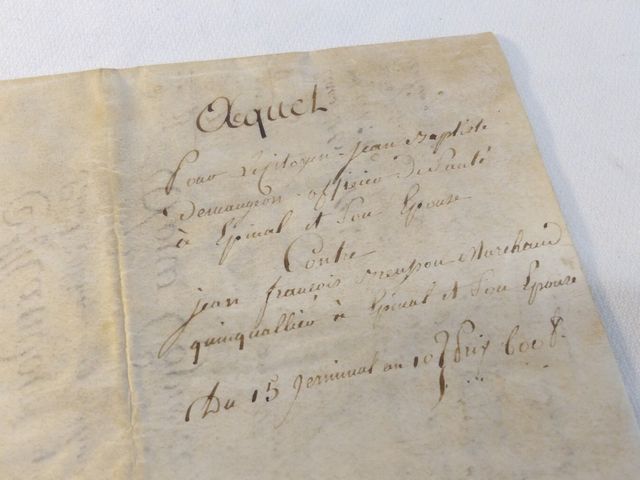 Acquet
Pour le Citoyen Jean Baptiste
Demangeon officié De Santé
à Epinal et Son Epouse
Contre
jean françois Marchand
quinquallié à Epinal et Son Epouse
Du 15 Jerminal an 10 Prix 600 #